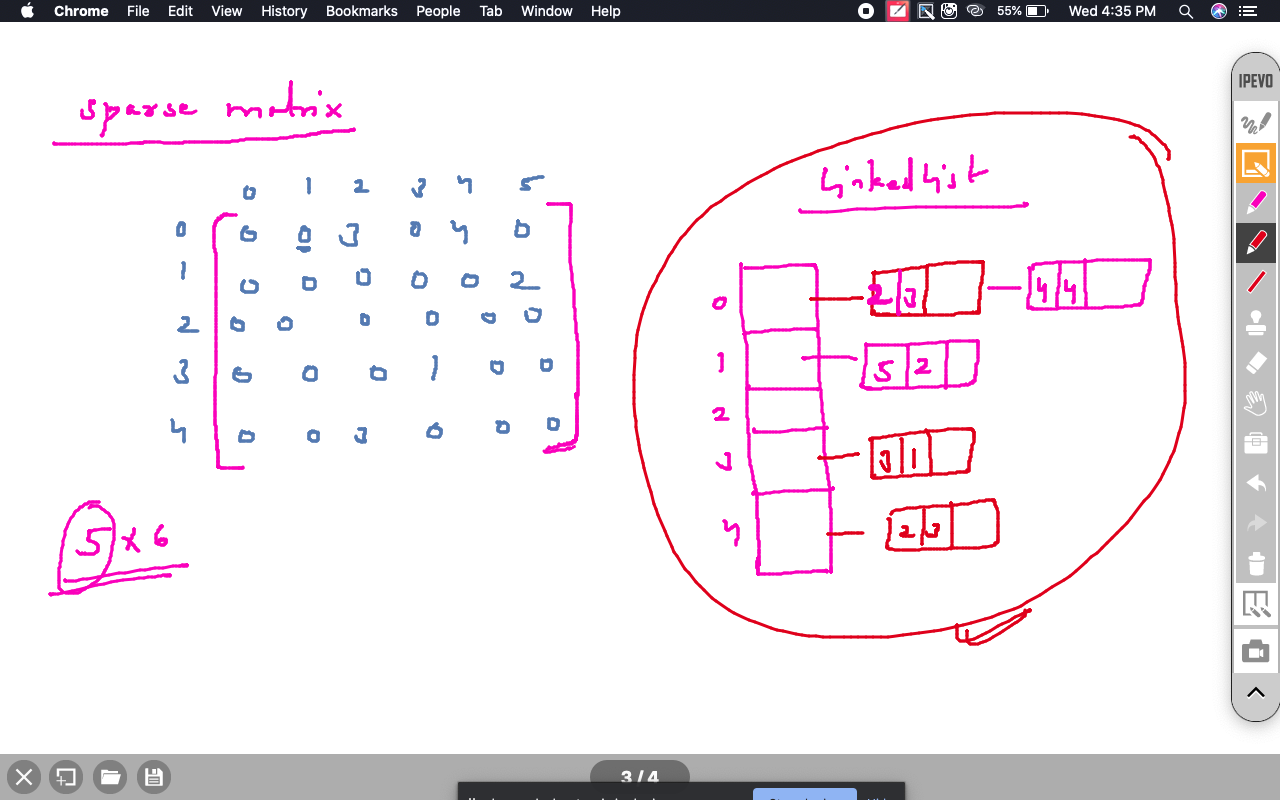 Chrome File Edit View History Bookmarks People Tab Window Help 55% Wed 4:35 PM
IPEVO
sparse matrix
0 1 2 3 4 5
0 0 0 3 0 4 0
1 0 0 0 0 0 2
2 0 0 0 0 0 0
3 0 0 0 1 0 0
4 0 0 3 0 0 0
5 x 6
Linked List
0 2 3 4 4
1 5 2
2
3 3 1
4 2 3
3 / 4